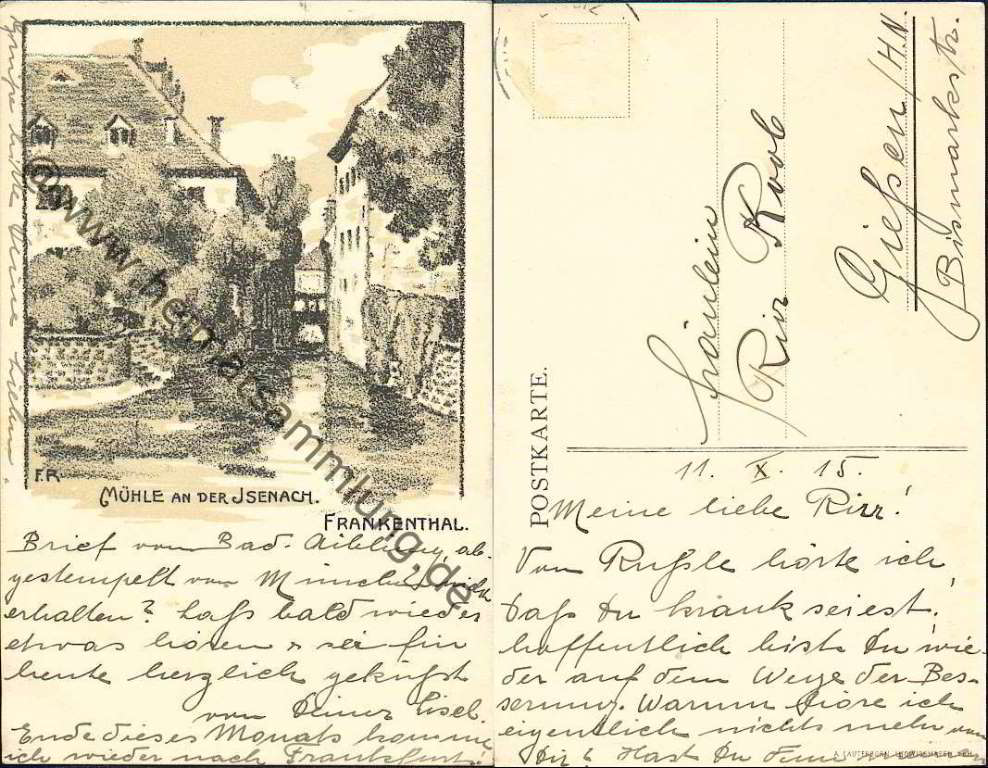 F.R.
MÜHLE AN DER JSENACH.
FRANKENTHAL.
www.heimatsammlung.de
POSTKARTE.
Fräulein
Rirr Koob
Gießen/H.N.
Bismarckstr.
11. X. 15.
Meine liebe Rirr!
Von Rußle hörte ich,
daß Du krank seiest,
hoffentlich bist Du wie-
der auf dem Wege der Bes-
serung. Warum höre ich
eigentlich nichts mehr von
Dir? Hast Du
Brief von Bad-Aibling, ab-
gestempelt von München nicht
erhalten? Laß bald wieder
etwas hören & sei für
heute herzlich geküßt
von Deiner Lisel.
Ende dieses Monats komme
ich wieder nach Frankfurt.